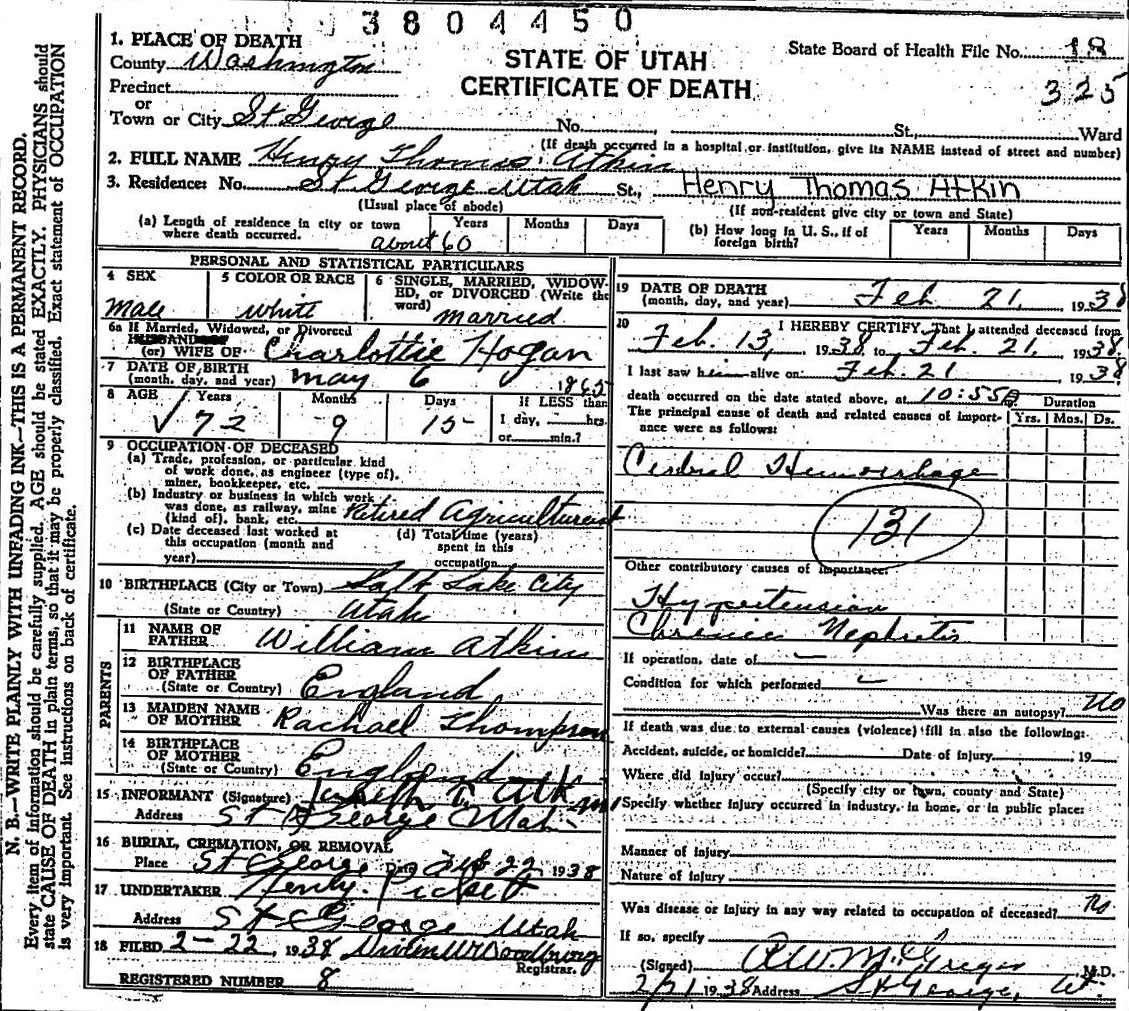 3804450
1. PLACE OF DEATH
County Washington
Precinct
or
Town or City St George
STATE OF UTAH
CERTIFICATE OF DEATH
State Board of Health File No. 18
325
No. St., Ward
(If death occurred in a hospital or institution, give its NAME instead of street and number)
2. FULL NAME Henry Thomas Atkin
3. Residence: No. St George Utah St., Henry Thomas Atkin
(Usual place of abode)
(If non-resident give city or town and State)
(a) Length of residence in city or town where death occurred. about 60 Years Months Days
(b) How long in U. S., if of foreign birth? Years Months Days
PERSONAL AND STATISTICAL PARTICULARS
4 SEX
Male
5 COLOR OR RACE
White
6 SINGLE, MARRIED, WIDOWED, or DIVORCED (Write the word) married
6a If Married, Widowed, or Divorced
HUSBAND
(or) WIFE OF Charlottie Hogan
7 DATE OF BIRTH
(month, day, and year) may 6 1865
8 AGE Years Months Days If LESS than
√ 72 9 15 1 day, hrs.
or min.?
9 OCCUPATION OF DECEASED
(a) Trade, profession, or particular kind
of work done, as engineer (type of),
miner, bookkeeper, etc.
(b) Industry or business in which work
was done, as railway, mine
(kind of), bank, etc. Retired Agriculturist
(c) Date deceased last worked at
this occupation (month and
year)
(d) Total time (years)
spent in this
occupation
10 BIRTHPLACE (City or Town) Salt Lake City
(State or Country) Utah
PARENTS
11 NAME OF
FATHER William Atkin
12 BIRTHPLACE
OF FATHER
(State or Country) England
13 MAIDEN NAME
OF MOTHER Rachael Thompson
14 BIRTHPLACE
OF MOTHER
(State or Country) England
15 INFORMANT (Signature) Atkin
Address St George Utah
16 BURIAL, CREMATION, OR REMOVAL
Place St George Date Feb 22 1938
17 UNDERTAKER Henry Picket
Address St George Utah
18 FILED 2-22, 1938 Woodbury
Registrar.
REGISTERED NUMBER 8
19 DATE OF DEATH
(month, day, and year) Feb 21 1938
20 I HEREBY CERTIFY, That I attended deceased from
Feb. 13, 1938 to Feb. 21, 1938.
I last saw him alive on Feb. 21 1938
death occurred on the date stated above, at 10:55A m. Duration
The principal cause of death and related causes of importance were as follows: Yrs. Mos. Ds.
Cerebral Hemorrhage
131
Other contributory causes of importance:
Hypertension
Chronic Nephritis
If operation, date of —
Condition for which performed —
Was there an autopsy? No
If death was due to external causes (violence) fill in also the following:
Accident, suicide, or homicide? Date of injury 19
Where did injury occur?
(Specify city or town, county and State)
Specify whether injury occurred in industry, in home, or in public place:
Manner of injury
Nature of injury
Was disease or injury in any way related to occupation of deceased? No
If so, specify
(Signed) McGregor M.D.
2/21 1938 Address St George, Ut.
N. B.—WRITE PLAINLY WITH UNFADING INK—THIS IS A PERMANENT RECORD.
Every item of information should be carefully supplied. AGE should be stated EXACTLY. PHYSICIANS should
state CAUSE OF DEATH in plain terms, so that it may be properly classified. Exact statement of OCCUPATION
is very important. See instructions on back of certificate.